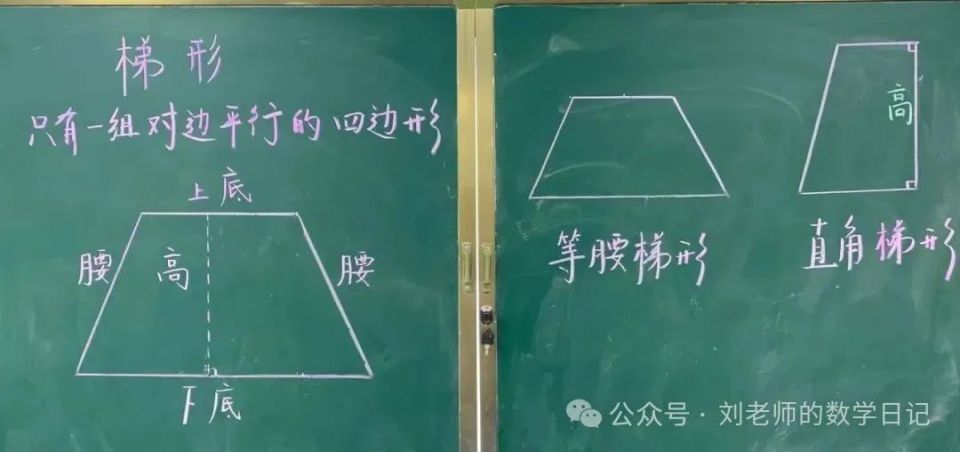 梯形
只有一组对边平行的四边形
上底
腰
高
腰
下底
高
等腰梯形
直角梯形
公众号·刘老师的数学日记